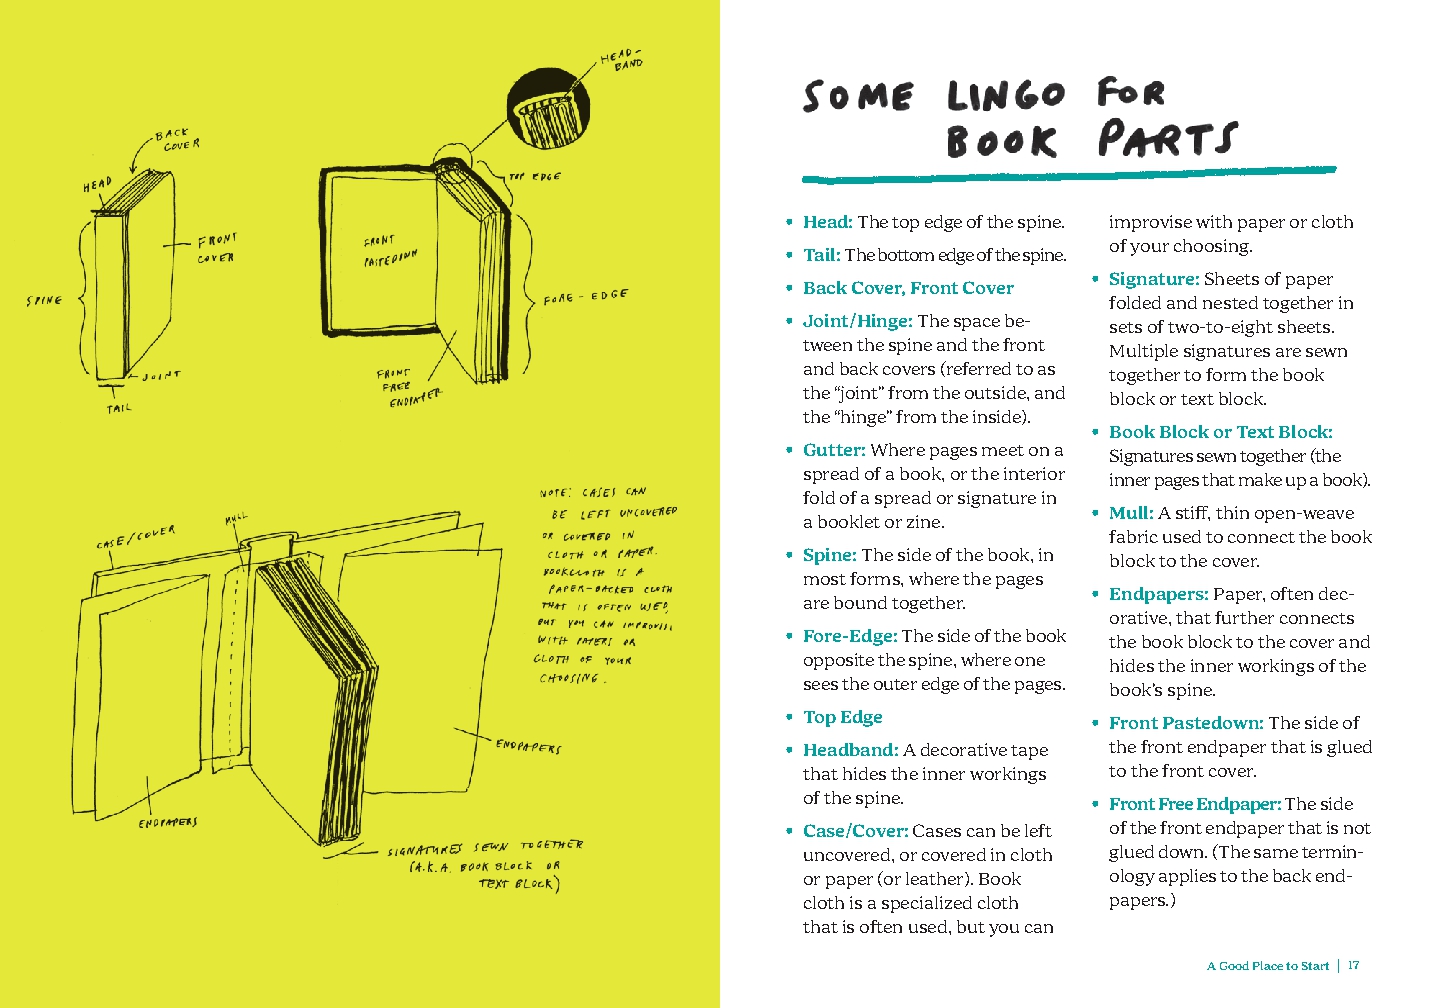 HEAD-
BAND
BACK
COVER
HEAD
TOP EDGE
FRONT
COVER
FRONT
PASTEDOWN
SPINE
FORE-EDGE
JOINT
TAIL
FRONT
FREE
ENDPAPER
NOTE: CASES CAN
BE LEFT UNCOVERED
OR COVERED IN
CLOTH OR PAPER.
BOOKCLOTH IS A
PAPER-BACKED CLOTH
THAT IS OFTEN USED,
BUT YOU CAN IMPROVISE
WITH PAPERS OR
CLOTH OF YOUR
CHOOSING.
CASE/COVER
MULL
ENDPAPERS
ENDPAPERS
SIGNATURES SEWN TOGETHER
(A.K.A. BOOK BLOCK OR
TEXT BLOCK)
SOME LINGO FOR
BOOK PARTS
• Head: The top edge of the spine.
• Tail: The bottom edge of the spine.
• Back Cover, Front Cover
• Joint/Hinge: The space be-
tween the spine and the front
and back covers (referred to as
the “joint” from the outside, and
the “hinge” from the inside).
• Gutter: Where pages meet on a
spread of a book, or the interior
fold of a spread or signature in
a booklet or zine.
• Spine: The side of the book, in
most forms, where the pages
are bound together.
• Fore-Edge: The side of the book
opposite the spine, where one
sees the outer edge of the pages.
• Top Edge
• Headband: A decorative tape
that hides the inner workings
of the spine.
• Case/Cover: Cases can be left
uncovered, or covered in cloth
or paper (or leather). Book
cloth is a specialized cloth
that is often used, but you can
improvise with paper or cloth
of your choosing.
• Signature: Sheets of paper
folded and nested together in
sets of two-to-eight sheets.
Multiple signatures are sewn
together to form the book
block or text block.
• Book Block or Text Block:
Signatures sewn together (the
inner pages that make up a book).
• Mull: A stiff, thin open-weave
fabric used to connect the book
block to the cover.
• Endpapers: Paper, often dec-
orative, that further connects
the book block to the cover and
hides the inner workings of the
book’s spine.
• Front Pastedown: The side of
the front endpaper that is glued
to the front cover.
• Front Free Endpaper: The side
of the front endpaper that is not
glued down. (The same termin-
ology applies to the back end-
papers.)
A Good Place to Start | 17